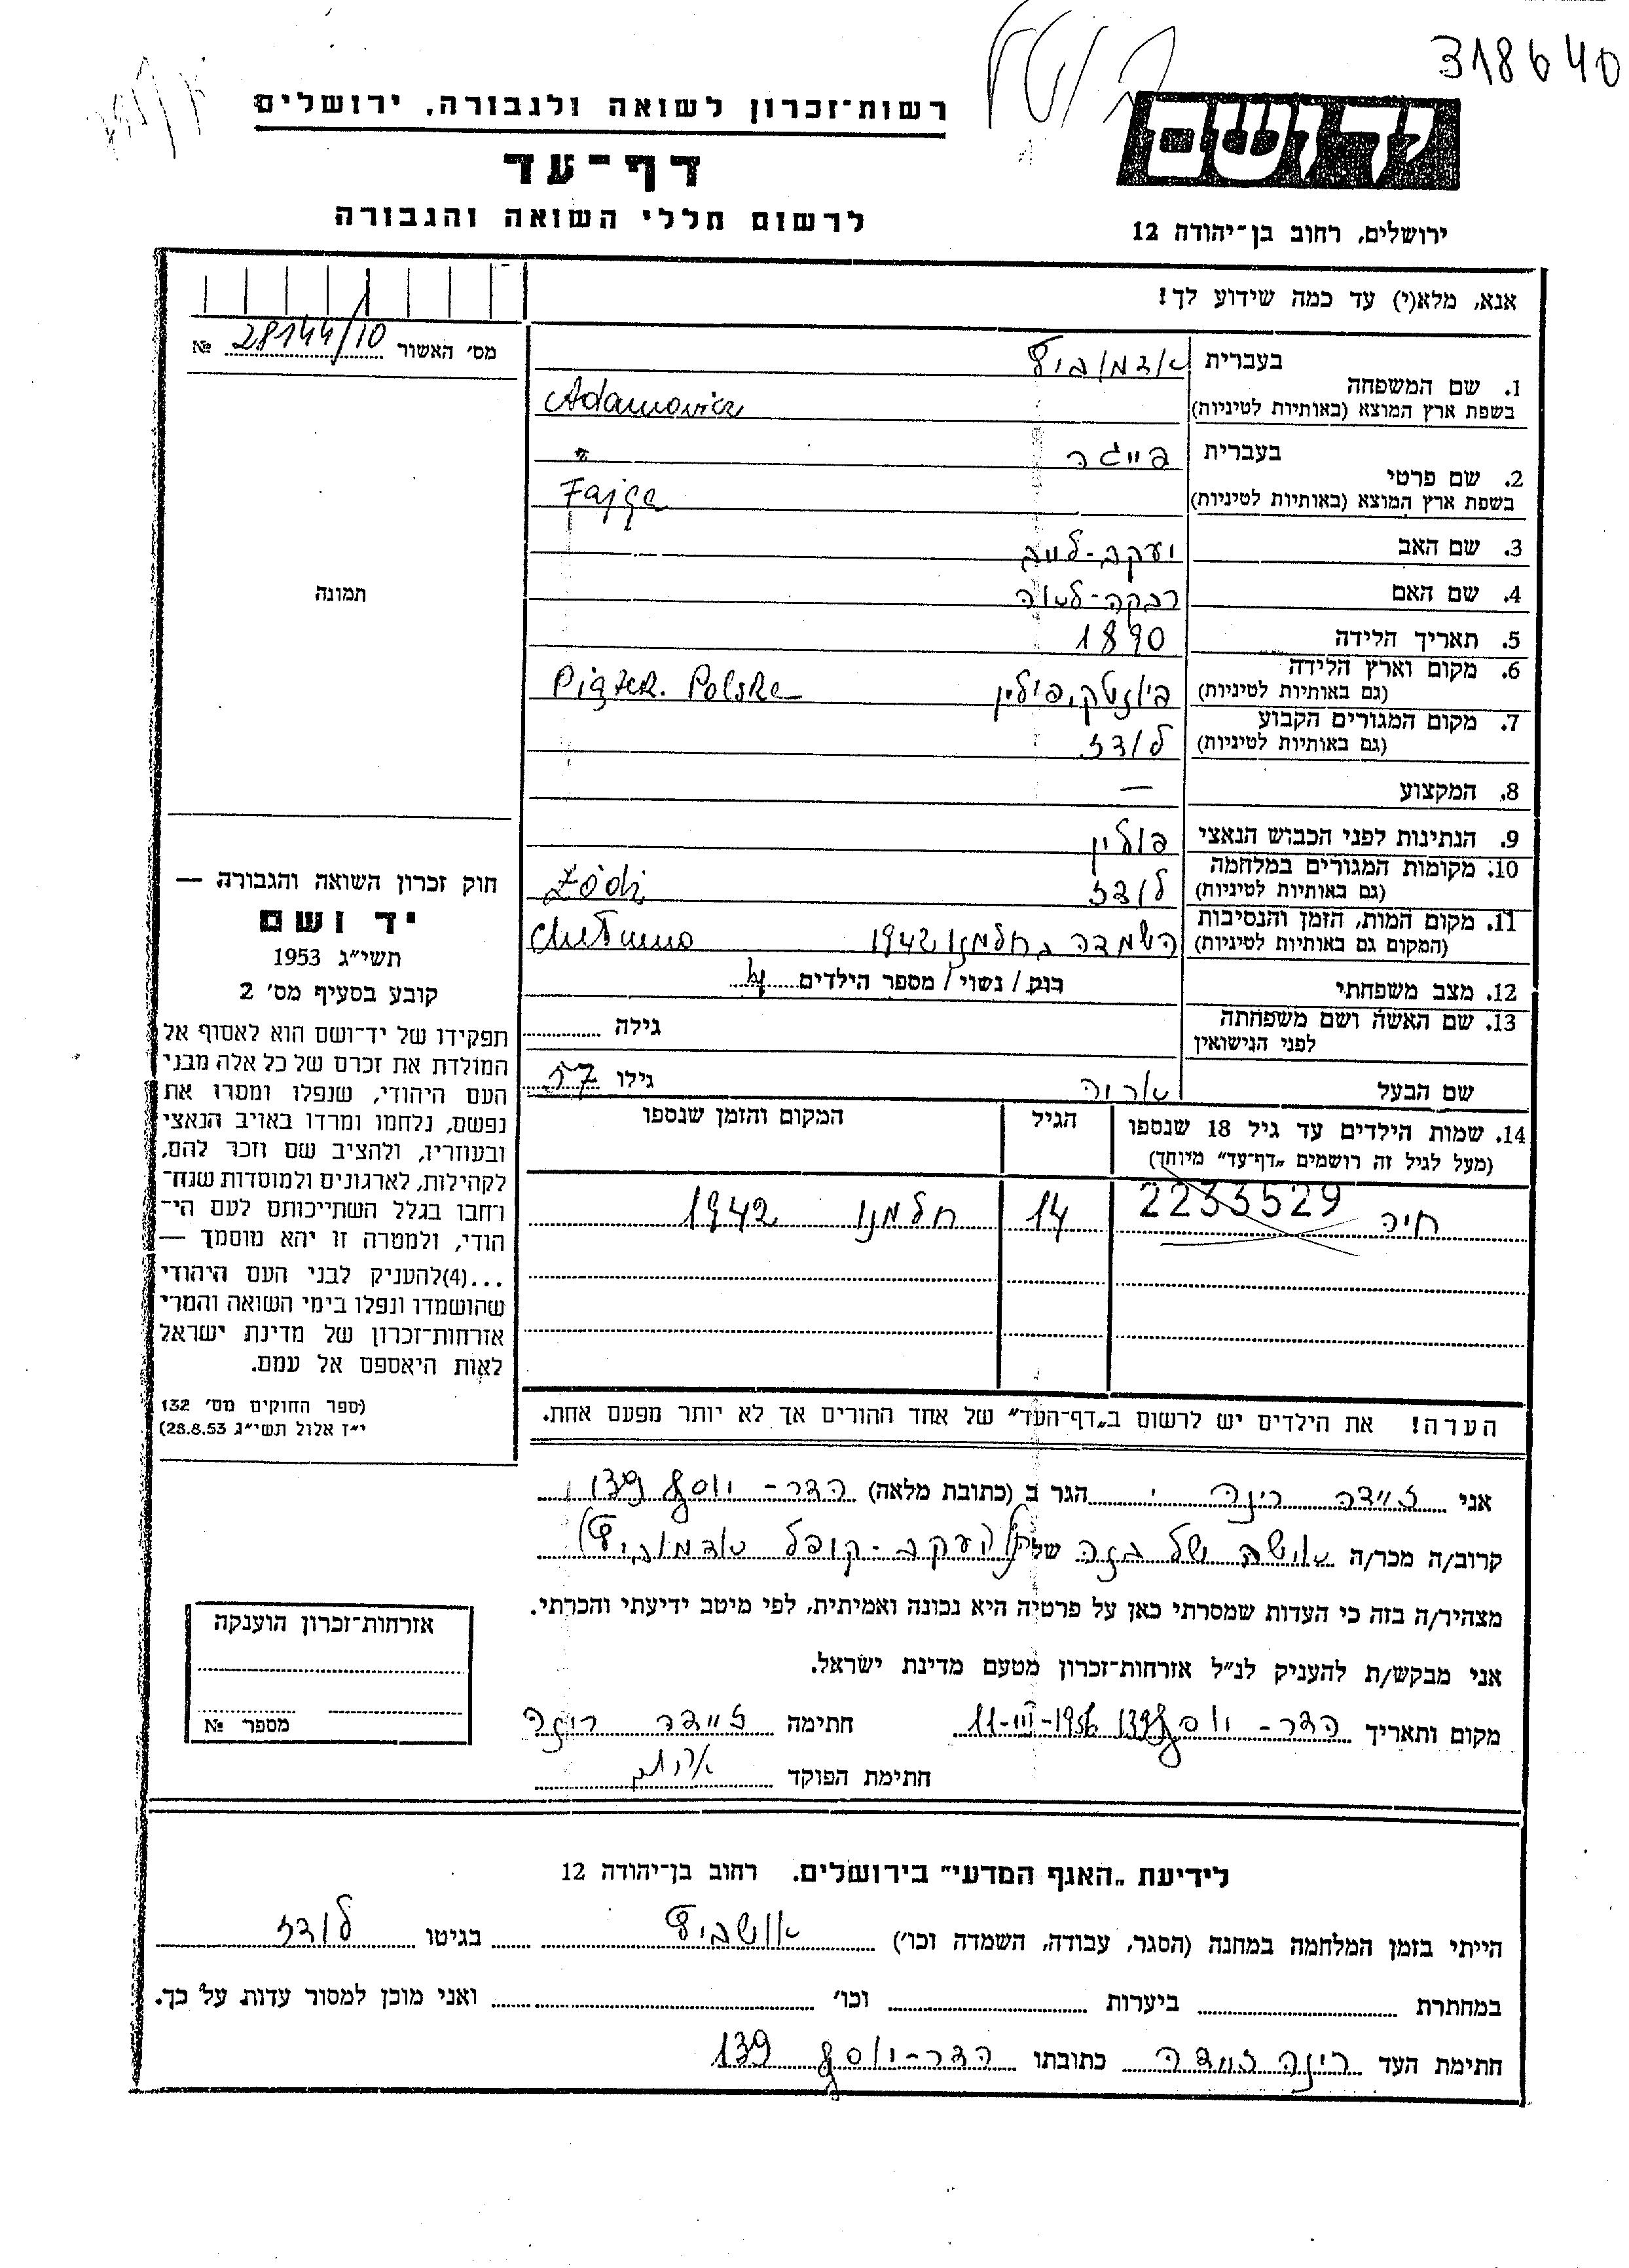 318640
רשות־זכרון לשואה ולגבורה, ירושלים
יד ושם
דף־עד
לרשום חללי השואה והגבורה
ירושלים, רחוב בן־יהודה 12
אנא, מלא(י) עד כמה שידוע לך!
מס׳ האשור 28144/10 №
1. שם המשפחה
בעברית אדמוביץ
בשפת ארץ המוצא (באותיות לטיניות) Adamowicz
2. שם פרטי
בעברית פייגה
בשפת ארץ המוצא (באותיות לטיניות) Fajga
3. שם האב יעקב-לייב
4. שם האם רבקה-לאה
5. תאריך הלידה 1890
6. מקום וארץ הלידה
(גם באותיות לטיניות) פיונטק, פולין Piątek. Polska
7. מקום המגורים הקבוע
(גם באותיות לטיניות) לודז
8. המקצוע —
9. הנתינות לפני הכבוש הנאצי פולין
10. מקומות המגורים במלחמה
(גם באותיות לטיניות) לודז Łódź
11. מקום המות, הזמן והנסיבות
(המקום גם באותיות לטיניות) השמדה בחלמנו 1942 Chełmno
12. מצב משפחתי רוק / נשוי / מספר הילדים 4
13. שם האשה ושם משפחתה
לפני הנישואין גילה
שם הבעל אריה גילו 57
14. שמות הילדים עד גיל 18 שנספו הגיל המקום והזמן שנספו
(מעל לגיל זה רושמים „דף־עד״ מיוחד)
חיה 2233529 14 חלמנו 1942
הערה! את הילדים יש לרשום ב„דף־העד״ של אחד ההורים אך לא יותר מפעם אחת.
תמונה
חוק זכרון השואה והגבורה —
יד ושם
תשי״ג 1953
קובע בסעיף מס׳ 2
תפקידו של יד־ושם הוא לאסוף אל
המולדת את זכרם של כל אלה מבני
העם היהודי, שנפלו ומסרו את
נפשם, נלחמו ומרדו באויב הנאצי
ובעוזריו, ולהציב שם וזכר להם,
לקהילות, לארגונים ולמוסדות שנח־
רחבו בגלל השתייכותם לעם הי־
הודי, ולמטרה זו יהא מוסמך —
...(4)להעניק לבני העם היהודי
שהושמדו ונפלו בימי השואה והמרי
אזרחות־זכרון של מדינת ישראל
לאות היאספם אל עמם.
(ספר החוקים מס׳ 132
י״ז אלול תשי״ג 28.8.53)
אני זיידה רינה הגר ב (כתובת מלאה) הדר-יוסף 139
קרוב/ה מכר/ה אישה של בנה של יעקב-קופל אדמוביץ
מצהיר/ה בזה כי העדות שמסרתי כאן על פרטיה היא נכונה ואמיתית, לפי מיטב ידיעתי והכרתי.
אני מבקש/ת להעניק לנ״ל אזרחות־זכרון מטעם מדינת ישראל.
מקום ותאריך הדר-יוסף 139 11-III-1956 חתימה זיידה רינה
חתימת הפוקד
אזרחות־זכרון הוענקה
מספר №
לידיעת „האגף המדעי״ בירושלים. רחוב בן־יהודה 12
הייתי בזמן המלחמה במחנה (הסגר, עבודה, השמדה וכו׳) אושביץ בגיטו לודז
במחתרת ביערות וכו׳ ואני מוכן למסור עדות על כך.
חתימת העד רינה זיידה כתובתו הדר-יוסף 139